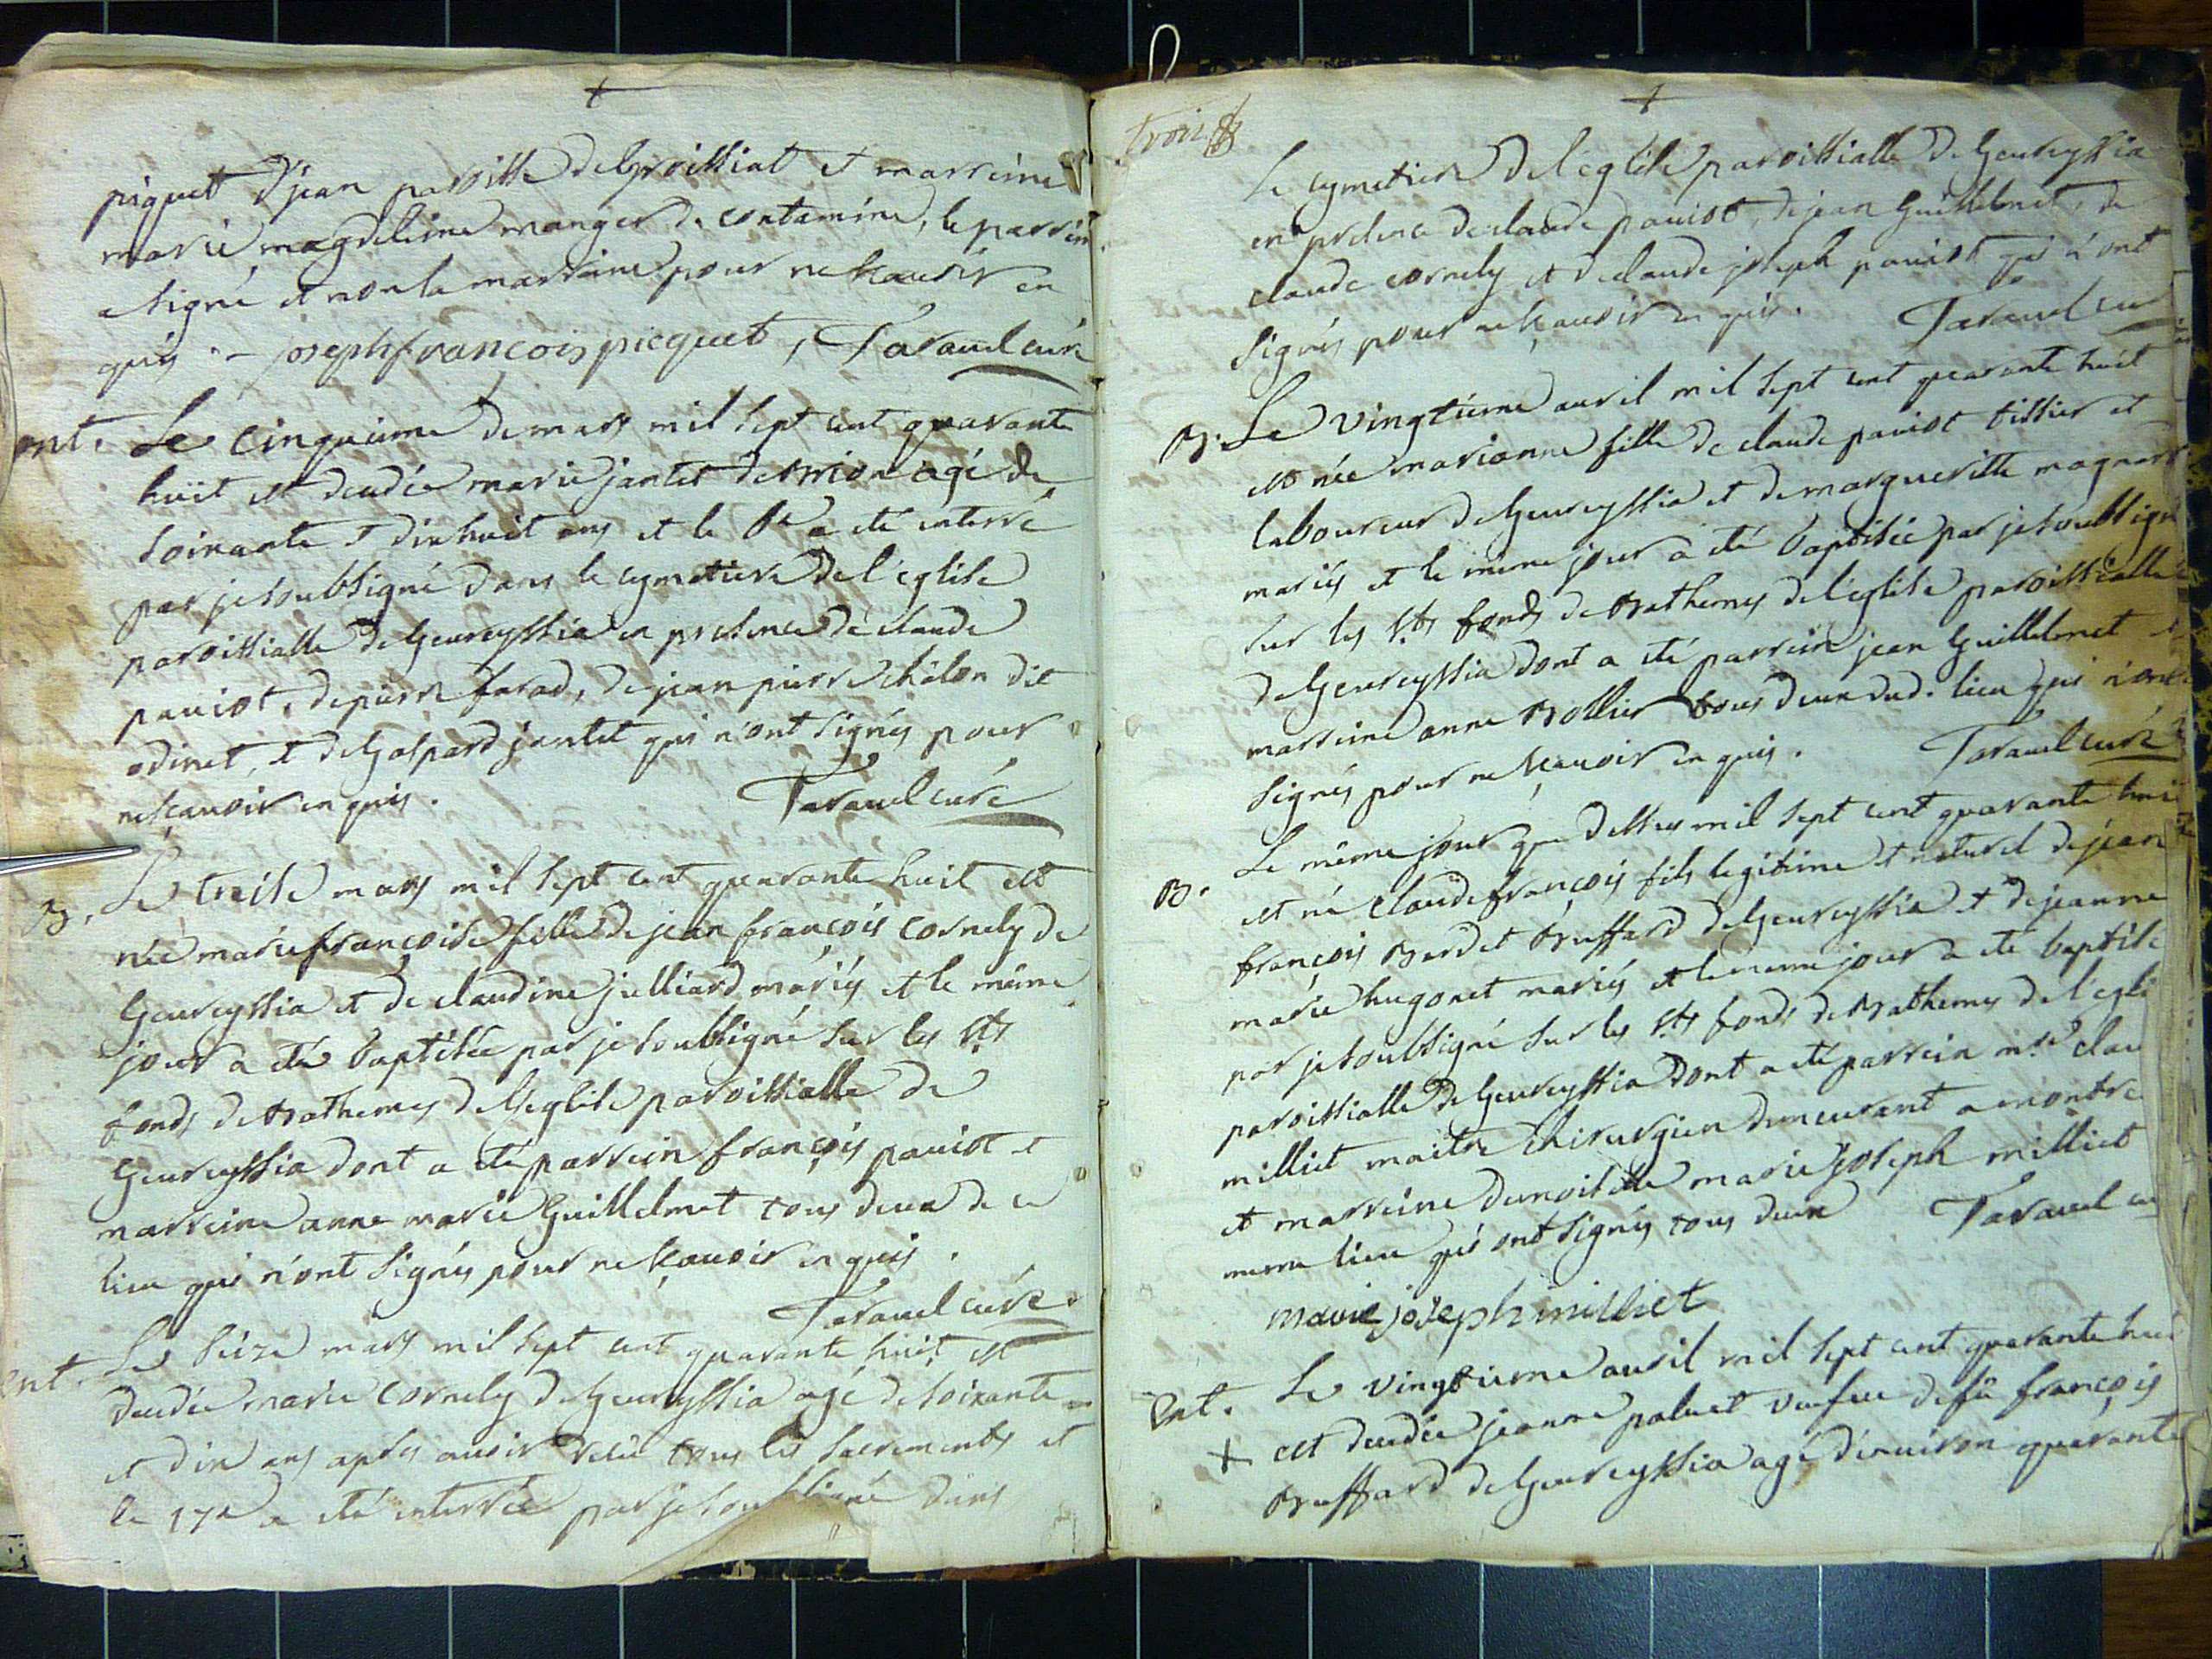 piquet d'jean paroisse de Groissiat et marreine
marie magdeleine manger de contamine, le parrein
a signé et non la marreine pour ne sçavoir en
quis. - joseph francois picquet, Taravel curé
ent. Le cinquieme de mars mil sept cent quarante
huit est decedée marie jantet de brion agé de
soixante et dix huit ans et le 6e a eté enterré
par je soubsigné dans le cymetiere de l'eglise
paroissialle de Geureyssia en presence de claude
pauiot, de pierre farod, de jean pierre châlon dit
odinet, et de Gaspard jantet qui n'ont signés pour
ne sçauoir en quis. Taravel curé
B. Le treise mars mil sept cent quarante huit est
née marie françoise fille de jean françois cornely de
Geureyssia et de claudine julliard mariés et le même
jour a eté baptisée par je soubsigné sur les Sts
fonds de Bathemes de l'eglise paroissialle de
Geureyssia dont a eté parrein françois pauiot et
marreine anne marie Guillelmet tous deux de ce
lieu qui n'ont signés pour ne sçauoir en quis.
Taravel curé
ent. Le seize mars mil sept cent quarante huit est
decedée marie cornely de Geureyssia agé de soixante
et dix ans après auoir reçu tous les sacrements et
le 17e a eté enterrée par je soubsigné dans
trois
Le cymetiere de l'eglise paroissialle de Geureyssia
en presence de claude pauiot, de jean Guillelmet, de
claude cornely et de claude joseph pauiot qui n'ont
signés pour ne sçauoir en quis. Taravel cu
B. Le vingtieme auril mil sept cent quarante huit
est née marianne fille de claude pauiot tissier et
laboureur de Geureyssia et de margueritte magnard
mariés et le même jour a eté baptisée par je soubsigné
sur les Sts fonds de Bathemes de l'eglise paroissialle
de Geureyssia dont a eté parrein jean Guillelmet et
marreine anne Bollier tous deux dud. lieu qui n'ont
signés pour ne sçauoir en quis. Taravel curé
B. Le même jour que dessus mil sept cent quarante hui
est né claude françois fils legitime et naturel de jean
françois Bardet Buffard de Geureyssia et de jeanne
marie hugonet mariés et le meme jour a eté baptisé
par je soubsigné sur les Sts fonds de Bathemes de l'egli
paroissialle de Geureyssia dont a eté parrein mre clau
milliet maitre chirurgien demeurant a montre
et marreine demoiselle marie joseph milliet
meme lieu qui ont signés tous deux Taravel cu
marie joseph milliet
Ent. Le vingtieme auril mil sept cent quarante hui
+ est decedée jeanne paluet veufue de fû françois
Buffard de Geureyssia agé d'enuiron quarante